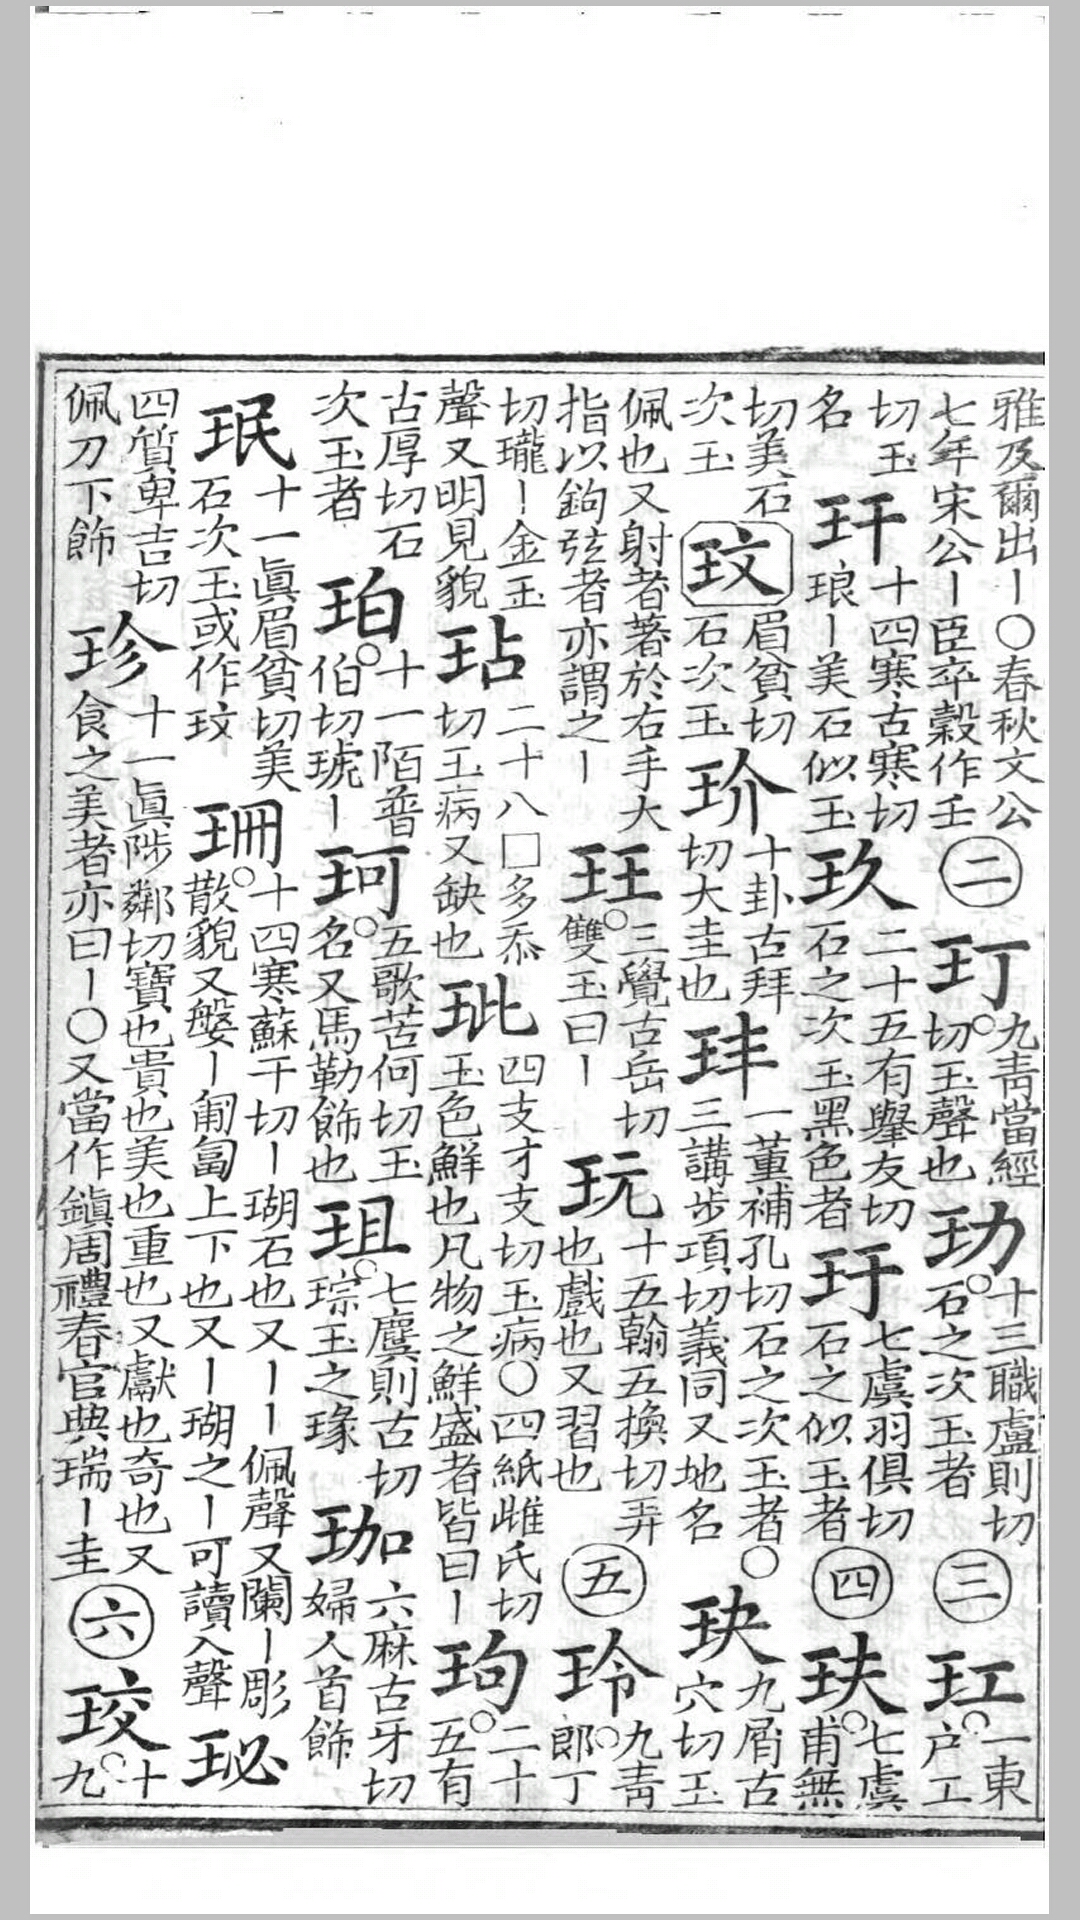 雅及爾出ー〇春秋文公七年宋公ー臣卒穀作壬㊁玎九靑當經切玉聲也玏十三職盧則切石之次玉者㊂玒一東戶工
切玉名玕十四寒古寒切琅ー美石似玉玖二十五有舉友切石之次玉黑色者玗七虞羽俱切石之似玉者㊃玞七虞甫無
切美石次玉玟眉貧切石次玉玠十卦古拜切大圭也玤一董補孔切石之次玉者〇三講步項切義同又地名玦九屑古穴切玉
佩也又射者著於右手大指以鉤弦者亦謂之ー玨三覺古岳切雙玉曰ー玩十五翰五換切弄也戲也又習也㊄玲九靑郎丁
切瓏ー金玉聲又明見貌玷二十八□多忝切玉病又缺也玼四支才支切玉病〇四紙雌氏切玉色鮮也凡物之鮮盛者皆曰ー玽二十五有
古厚切石次玉者珀十一陌普伯切琥ー珂五歌苦何切玉名又馬勒飾也珇七麌則古切琮玉之瑑珈六麻古牙切婦人首飾
珉十一眞眉貧切美石次玉或作玟珊十四寒蘇干切ー瑚石也又ーー佩聲又闌ー彫散貌又媻ー匍匐上下也又ー瑚之ー可讀入聲珌
四質卑吉切佩刀下飾珍十一眞陟鄰切寶也貴也美也重也又獻也奇也又食之美者亦曰ー〇又當作鎭周禮春官典瑞ー圭㊅珓十九